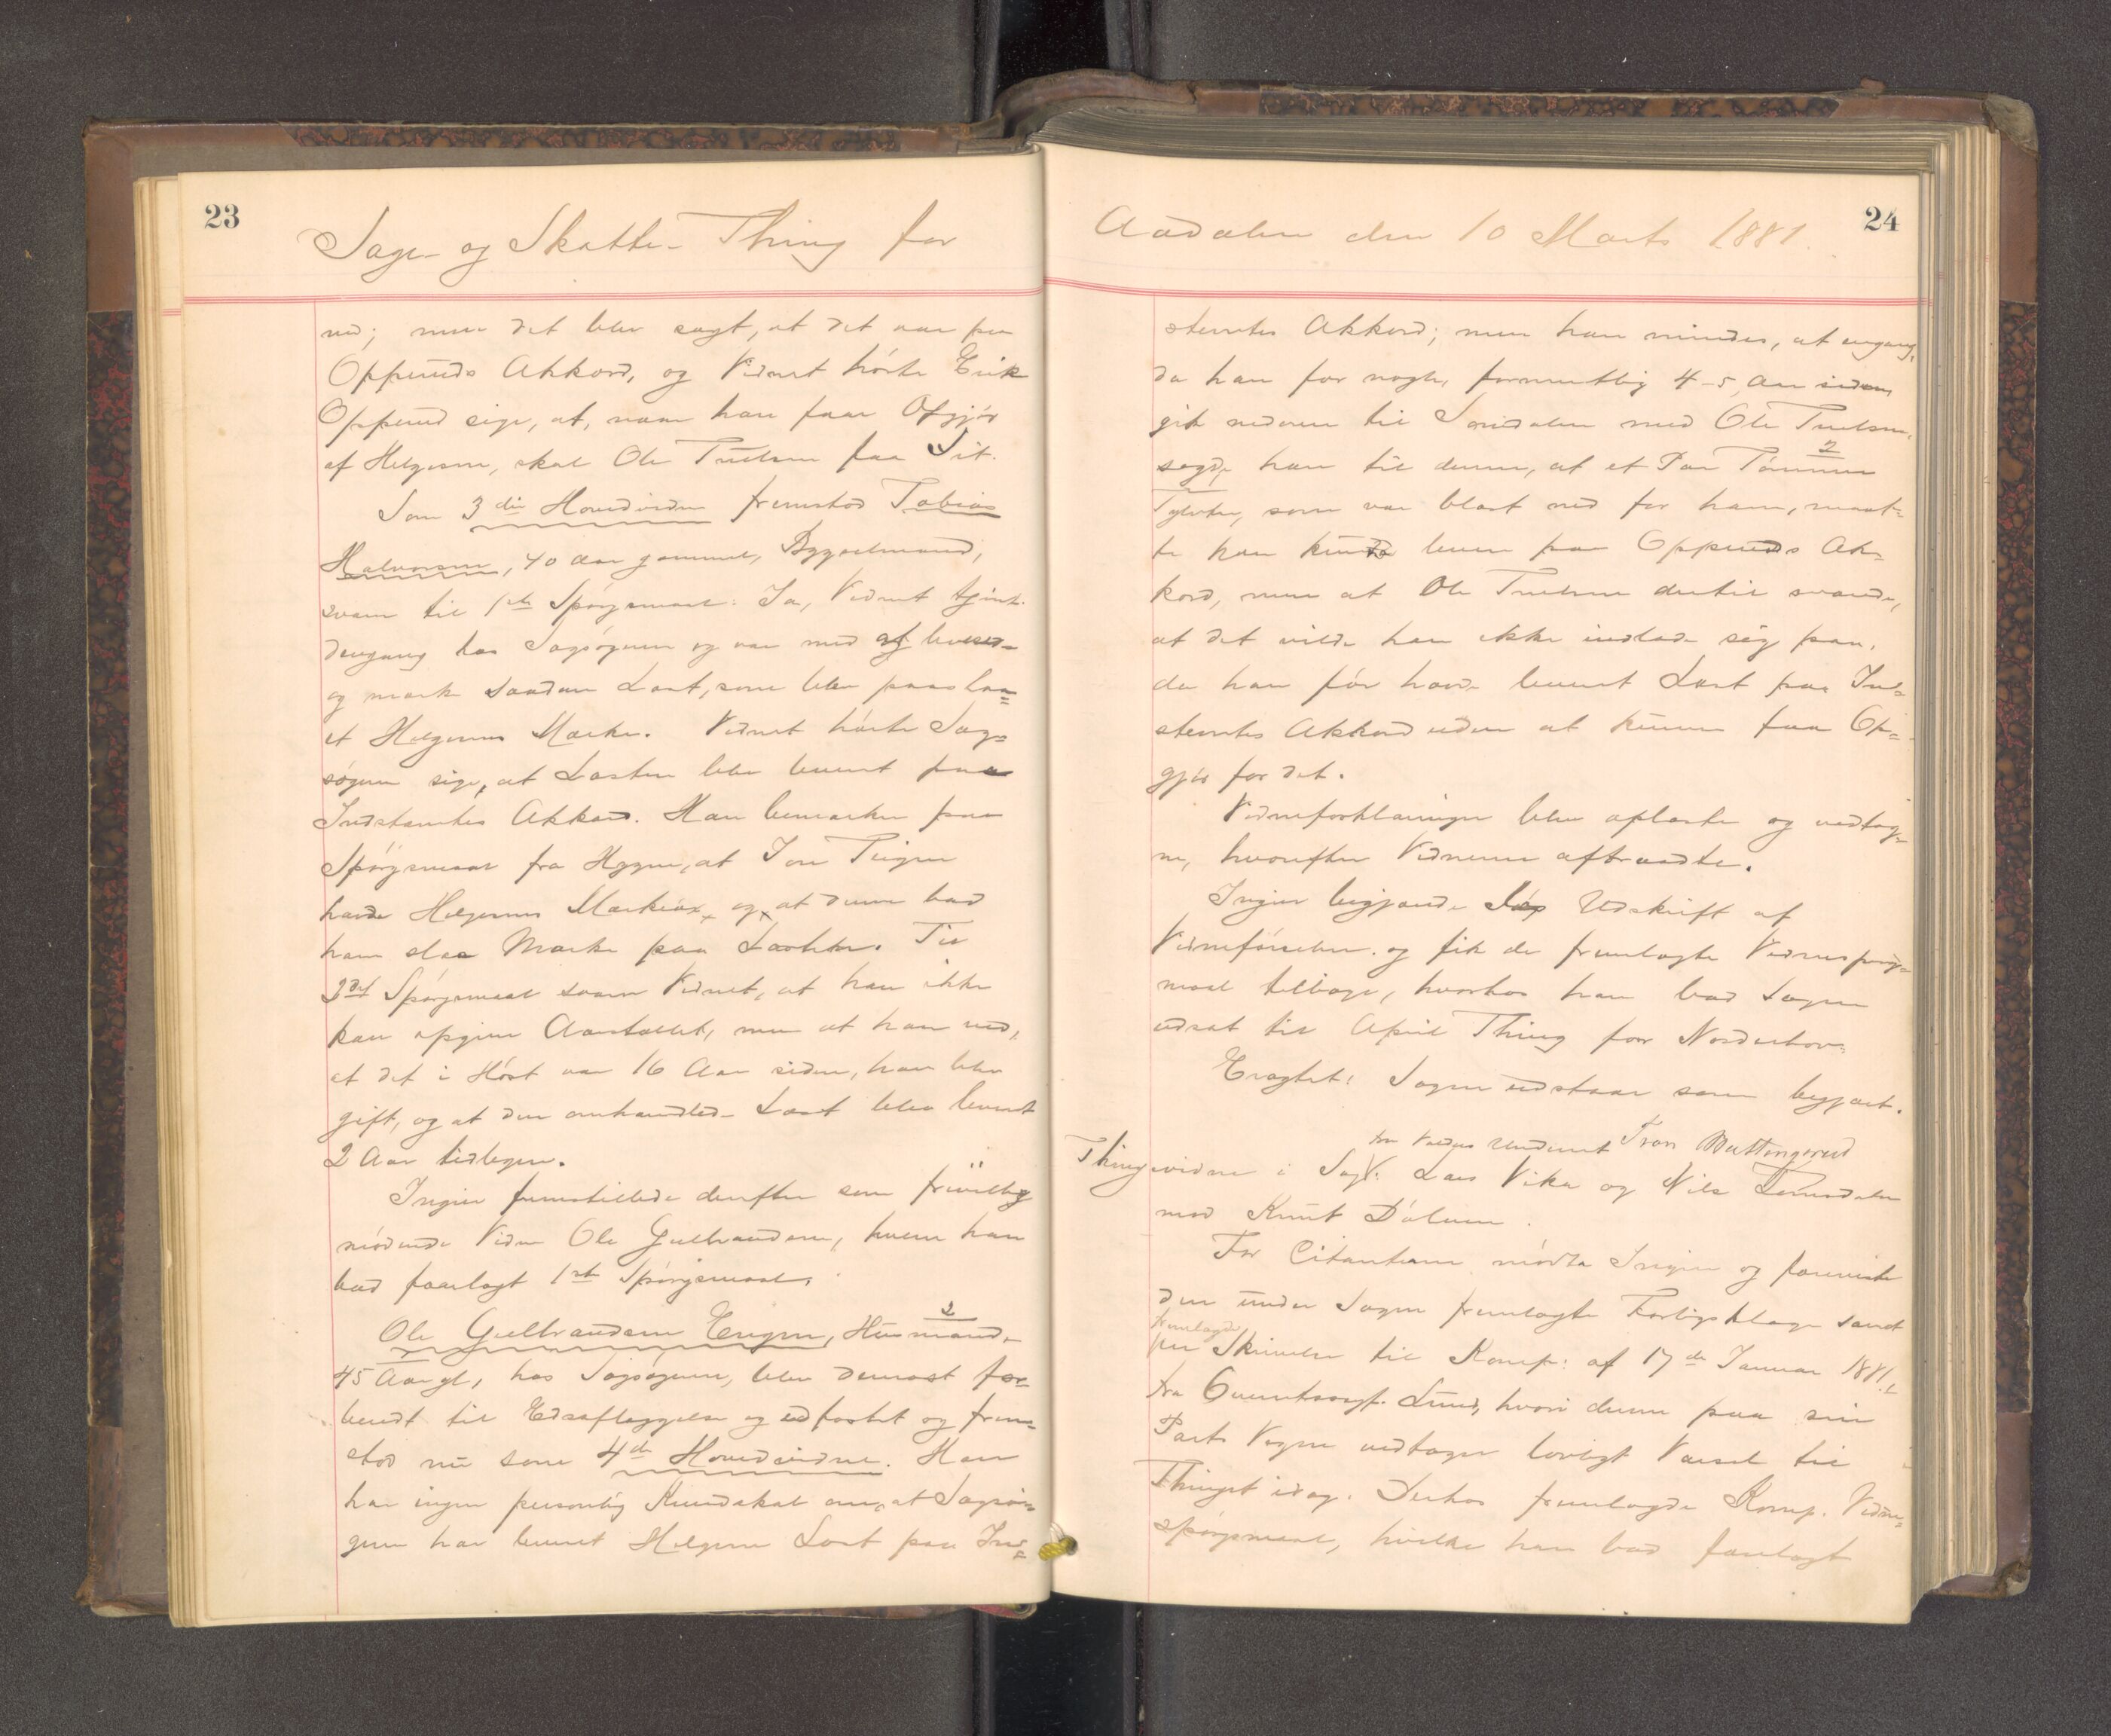 23
Sage- og Skatte-Thing for
ned; men det blev sagt, at det var paa
Opperuds Akkord, og Vidnet hörte Erik
Opperud sige, at, naar han faar Opgjör
af Helgesen, skal Ole Truelsen faa Sit.
Som 3die Hovedvidne fremstod Tobias
Halvorsen, 40 Aar gammel, Bygselmand,
svarer til 1ste Spörgsmaal: Ja, Vidnet tjente
dengang hos Sagsögeren og var med at levere
og mærke saadan Last, som blev paaslaa-
et Helgesens Mærke. Vidnet hörte Sag-
sögeren sige, at Lasten blev leveret paa
Indstæntes Akkord. Han bemærker paa
Spörgsmaal fra Hggen, at Jon Teigen
havde Helgesens Mærkeöx, og at denne bad
ham slaa Mærke paa Lasten. Til
3die Spörgsmaal svarer Vidnet, at han ikke
kan opgive Aarstallet, men at han ved,
at det i Höst var 16 Aar siden, han blev
gift, og at den omhandlede Last blev leveret
2 Aar tidligere.
Ingier fremstillede derefter som frivillig
mödende Vidne Ole Gulbrandsen, hvem han
bad forelagt 1ste Spörgsmaal.
Ole Gulbrandsen Engen, Husmand 2
45 Aar gl, hos Sagsögeren, blev dernæst for-
beredt til Edsaflæggelse og edfæstet og frem-
stod nu som 4de Hovedvidne. Han
har ingen personlig Kundskab om, at Sagsö-
geren har leveret Helgesen Last paa Ind-
24
Aadalen den 10 Marts 1881.
stæntes Akkord; men han mindes, at engang,
da han for nogle, formentlig 4-5 Aar siden
gik nedover til Sørdalen med Ole Truelsen,
sagde han til denne, at et Par Tömmer 2
Tylvter, som var blæst ned for ham, maat-
te han kunde levere paa Opperuds Ak-
kord, men at Ole Truelsen dertil svarede,
at det vilde han ikke indlade sig paa,
da han för havde leveret Last paa Ind-
stæntes Akkord uden at kunne faa Op-
gjör for det.
Vidneforklaringen blev oplæste og vedtag-
ne, hvorefter Vidnerne aftraadte.
Ingier begjærede Udskrift af
Vidneförselen og fik de fremlagte Vidnespörgs-
maal tilbage, hvorhos han bad Sagen
udsat til April Thing for Norderhov.
Eragtet: Sagen udstaar som begjært.
Thingsvidne i Sag: Lars Vika og Nils
mod Knut Dölven.
For Citanterne mödte Ingier og foreviste
den under Sagen fremlagte Forligsklage samt
fremlagde
en Skrivelse til Komp: af 17de Januar 1881,
fra Overretssagf. Lund, hvori denne paa sin
Parts Vegne vedtager lovligt Varsel til
Thinget idag. Derhos fremlagde Komp. Vidne-
spörgsmaal, hvilke han bad forelagt